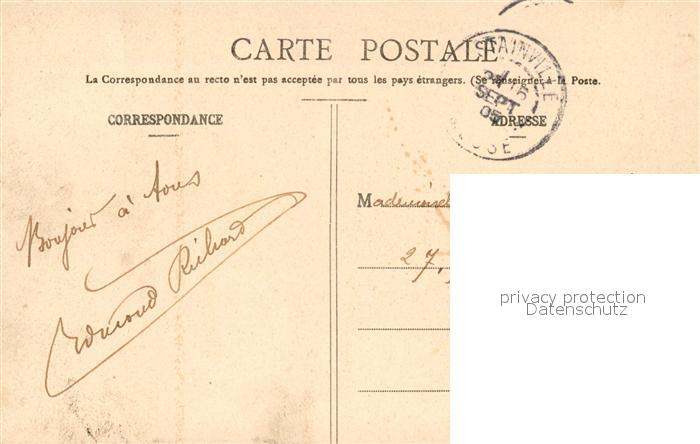 CARTE POSTALE
La Correspondance au recto n'est pas acceptée par tous les pays étrangers. (Se renseigner à la Poste.
STAINVILLE
SEPT
05
CORRESPONDANCE
ADRESSE
Bonjour à tous
Edmond Richard
27,
privacy protection
Datenschutz